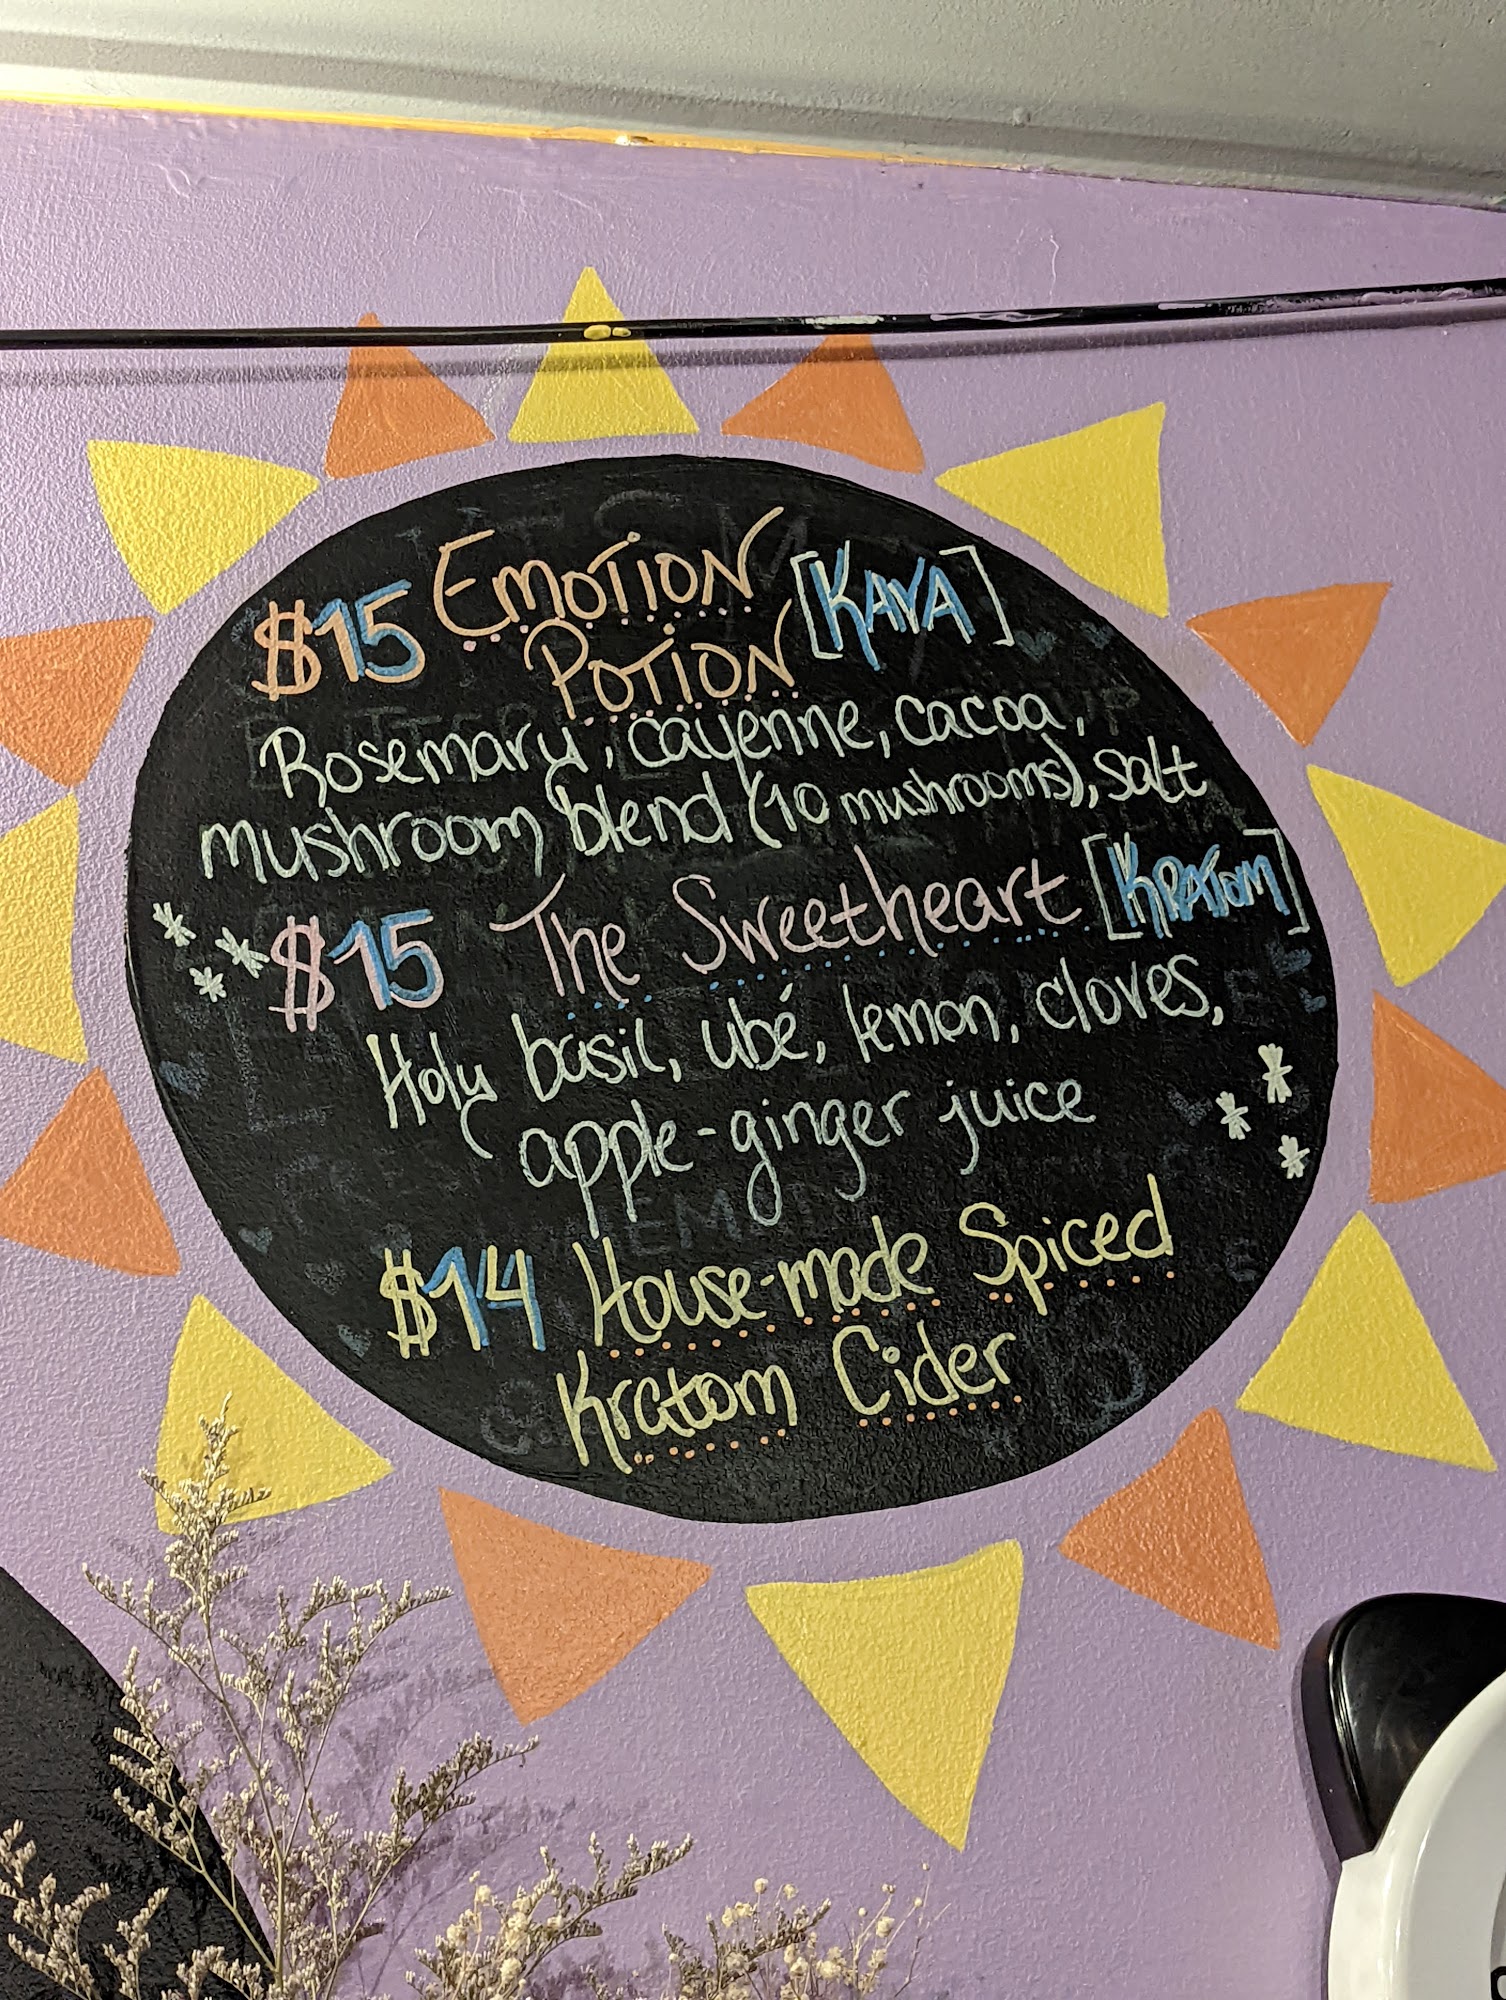 $15 EMOTION POTION [KAVA]
Rosemary, cayenne, cacoa,
mushroom blend (10 mushrooms), salt
$15 The Sweetheart [KRATOM]
Holy basil, ubé, lemon, cloves,
apple-ginger juice
$14 House-made Spiced
Kratom Cider